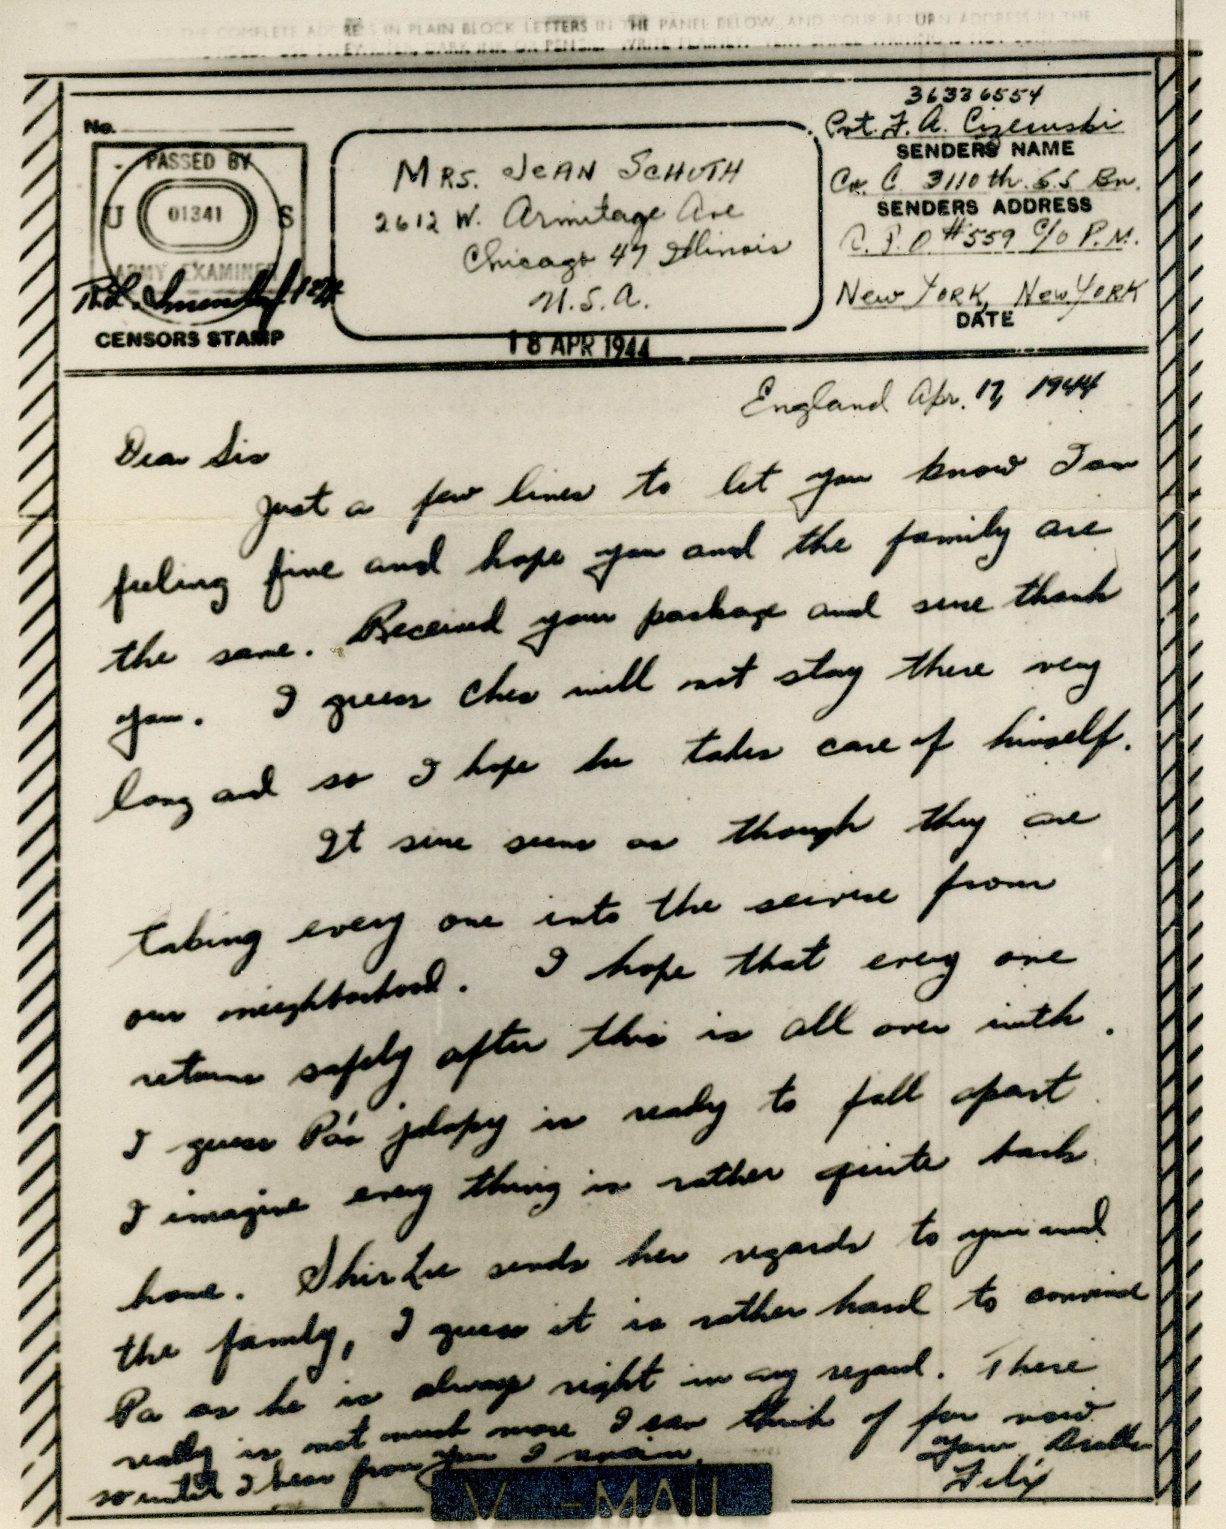 THE COMPLETE ADDRESS IN PLAIN BLOCK LETTERS IN THE PANEL BELOW, AND YOUR RETURN ADDRESS IN THE
No.
PASSED BY
U 01341 S
ARMY EXAMINER
CENSORS STAMP
MRS. JEAN SCHUTH
2612 W. Armitage Ave
Chicago 47 Illinois
U.S.A.
18 APR 1944
36336554
Pvt. F. A. Cizewski
SENDERS NAME
Co. C 3110th. S.S Bn.
SENDERS ADDRESS
A.P.O #559 c/o P.M.
New York, New York
DATE
England Apr. 17, 1944
Dear Sis
Just a few lines to let you know I am
feeling fine and hope you and the family are
the same. Received your package and sure thank
you. I guess Ches will not stay there very
long and so I hope he takes care of himself.
It sure seems as though they are
taking every one into the service from
our neighborhood. I hope that every one
returns safely after this is all over with.
I guess Pa's jalopy is ready to fall apart
I imagine every thing is rather quite back
home. Shir Lee sends her regards to you and
the family, I guess it is rather hard to convince
Pa as he is always right in any regard. There
really is not much more I can think of for now
so until I hear from you I remain,
Your Brother
Felix
V-MAIL